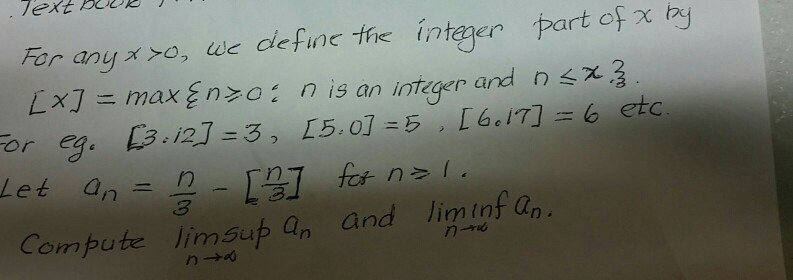 Textbook
For any x>0, we define the integer part of x by
[x] = max {n≥0 : n is an integer and n ≤ x}.
For eg. [3.12] = 3, [5.0] = 5, [6.17] = 6 etc.
Let aₙ = n/3 - [n/3] for n ≥ 1.
Compute limsup aₙ and liminf aₙ.
n→∞ n→∞